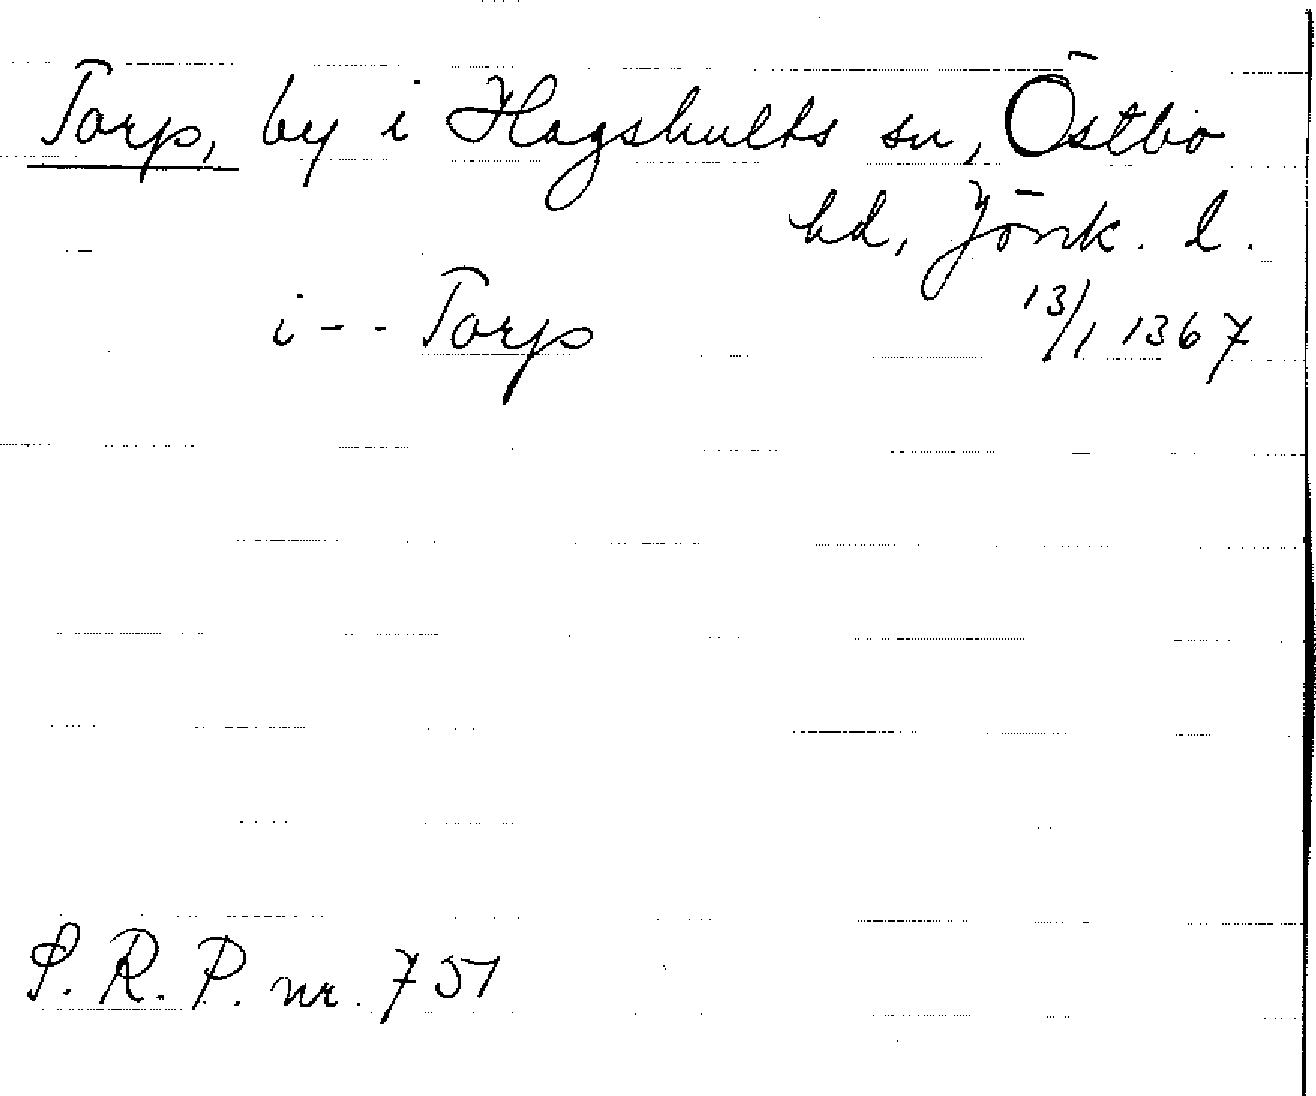 Torp, by i Hagshults sn, Östbo
hd, Jönk. l.
i - - Torp 13/1 1367
S. R. P. nr. 751